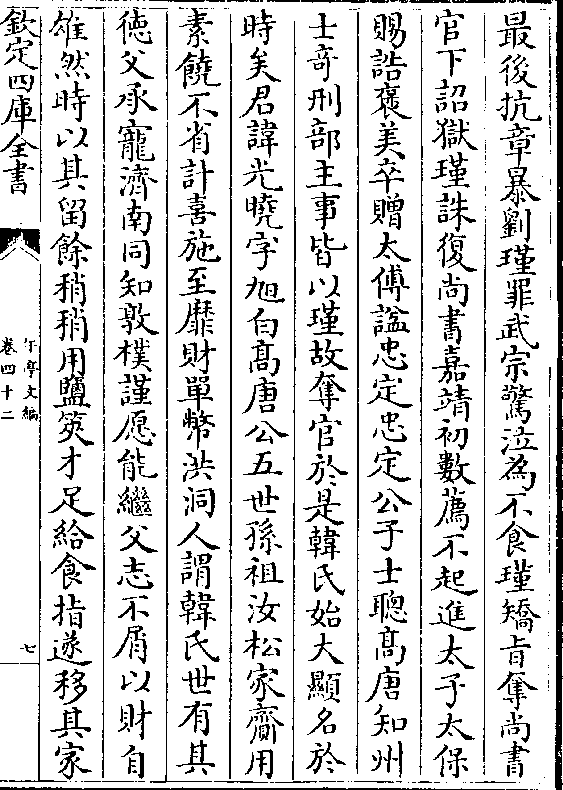 最後抗章暴劉瑾罪武宗驚泣為不食瑾矯旨奪尚書
官下詔獄瑾誅復尚書嘉靖初數薦不起進太子太保
賜誥褒美卒贈太傅諡忠定忠定公子士聰高唐知州
士奇刑部主事皆以瑾故奪官於是韓氏始大顯名於
時矣君諱光曉字旭白高唐公五世孫祖汝松家齎用
素饒不省計喜施至靡財單幣洪洞人謂韓氏世有其
徳父承寵濟南同知敦樸謹愿能繼父志不屑以財自
雄然時以其留餘稍稍用鹽筴才足給食指遂移其家
欽定四庫全書
午亭文編
卷四十二
七